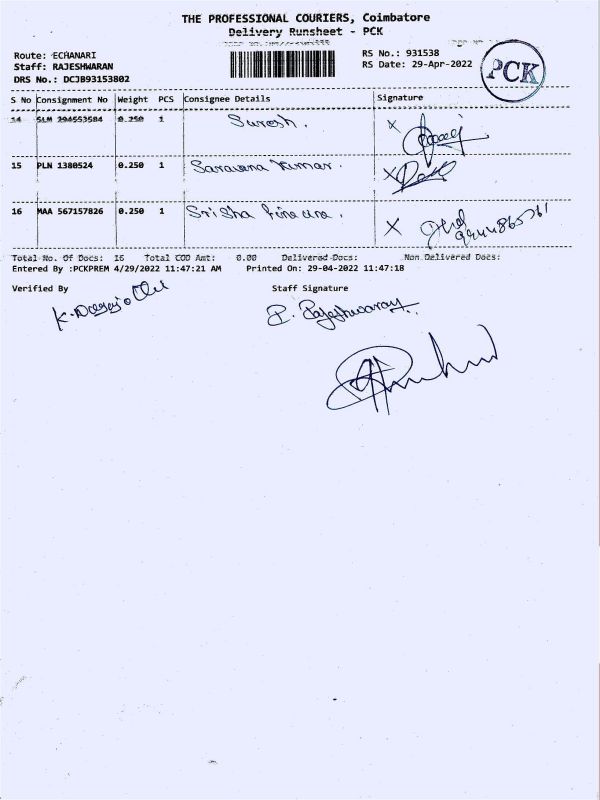 THE PROFESSIONAL COURIERS, Coimbatore
Delivery Runsheet - PCK
Route: ECHANARI
Staff: RAJESHWARAN
DRS No.: DCJB93153802
RS No.: 931538
RS Date: 29-Apr-2022
PCK
S No Consignment No Weight PCS Consignee Details Signature
14 SLM 294553584 0.250 1 Suresh.
15 PLN 1380524 0.250 1 Saravana Kumar.
16 MAA 567157826 0.250 1 Sri Sha
Total No. Of Docs: 16 Total COD Amt: 0.00 Delivered Docs: Non Delivered Docs:
Entered By :PCKPREM 4/29/2022 11:47:21 AM Printed On: 29-04-2022 11:47:18
Verified By Staff Signature
P. Rajeshwaran